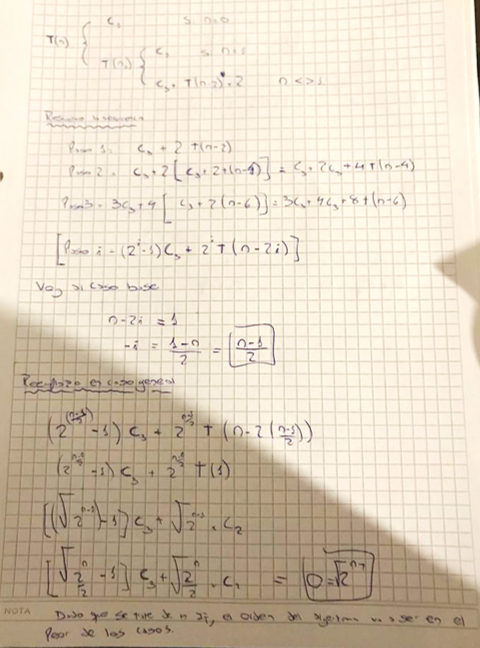 C₁ si n=0
T(n) {
T(n) { C₂ si n=1
C₃ + T(n-2) * 2 n <> 1
Paso 1: C₃ + 2 T(n-2)
Paso 2: C₃ + 2[C₃ + 2T(n-4)] = C₃ + 2C₃ + 4T(n-4)
Paso 3 = 3C₃ + 4[C₃ + 2(n-6)] = 3C₃ + 4C₃ + 8T(n-6)
[Paso i = (2ⁱ-1)C₃ + 2ⁱ T(n-2i)]
Voy al caso base
n-2i = 1
-i = (1-n)/2 = (n-1)/2
Reemplazo en caso general
(2^((n-1)/2) -1) C₃ + 2^((n-1)/2) T(n-2((n-1)/2))
(2^((n-1)/2) -1) C₃ + 2^((n-1)/2) T(1)
[(√2^(n-1)) -1] C₃ + √2^(n-1) . C₂
[√(2^n/2) -1] C₃ + √(2^n/2) . C₂ = O=√2^n
NOTA
Dado que se de n el orden del en el
Peor de los casos.